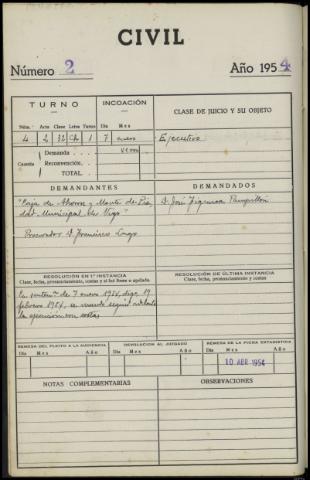 CIVIL
Número 2 Año 1954
TURNO INCOACIÓN CLASE DE JUICIO Y SU OBJETO
Núm. Acta Clase Letra Turno Día Mes
4 2 32 1 7 enero Ejecutivo
Cuantía Demanda
Reconvención.
TOTAL
DEMANDANTES DEMANDADOS
"Caja de Ahorros y Monte de Pie- D. José
dad Municipal de Vigo"
Procurador D. Francisco Lago
RESOLUCIÓN EN 1ª INSTANCIA RESOLUCIÓN DE ÚLTIMA INSTANCIA
Clase, fecha, pronunciamiento, costas y si fué firme o apelada. Clase, fecha, pronunciamiento y costas
En sentencia de 7 enero 1954, digo 19
febrero 1954, se mandó seguir adelante
la ejecución con costas
REMESA DEL PLEITO A LA AUDIENCIA DEVOLUCIÓN AL JUZGADO REMESA DE LA FICHA ESTADÍSTICA
Día Mes Año Día Mes Año Día Mes Año
10 ABR 1954
NOTAS COMPLEMENTARIAS OBSERVACIONES